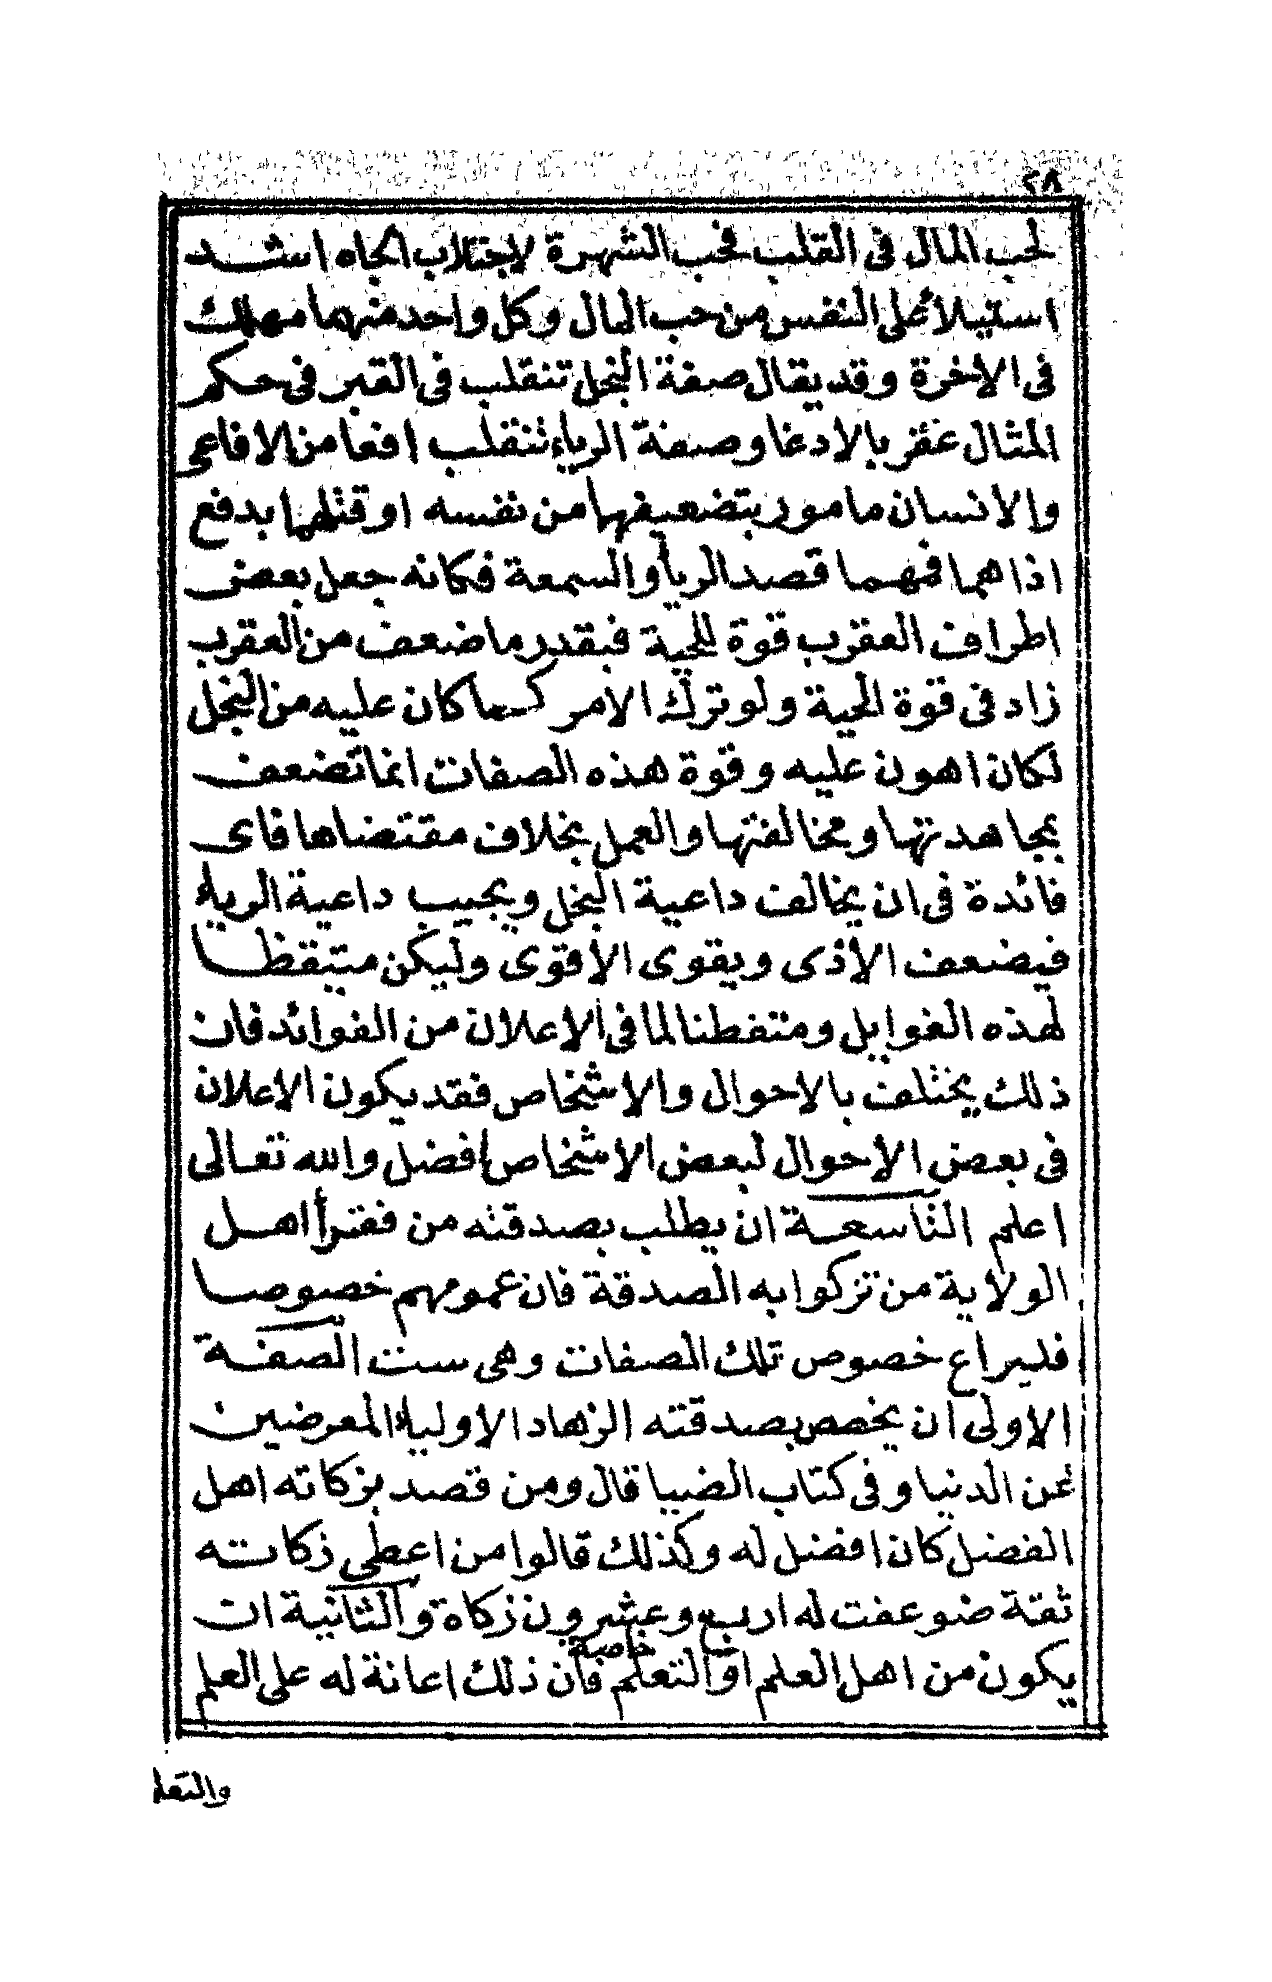 ٢٨
لحب المال فى القلب فحب الشهرة لاجتلاب الجاه اشد
استيلأ على النفس من حب المال وكل واحد منهما مهلك
فى الأخرة وقد يقال صفة البخل تنقلب فى القبر فى حكم
المثال عقربا لادغا وصفة الرياء تنقلب افعا من الافاعى
والانسان مامور بتضعيفهما من نفسه او قتلهما بدفع
اذاهما فمهما قصد الريأ والسمعة فكانه جعل بعض
اطراف العقرب قوة للحية فبقدر ما ضعف من العقرب
زاد فى قوة الحية ولو ترك الامر كما كان عليه من البخل
لكان اهون عليه وقوة هذه الصفات انما تضعف
بمجاهدتها ومخالفتها والعمل بخلاف مقتضاها فاى
فائدة فى ان يخالف داعية البخل ويجيب داعية الرياء
فيضعف الأذى ويقوى الأقوى وليكن متيقظا
لهذه الغوايل ومتفطنا لما فى الاعلان من الفوائد فان
ذلك يختلف بالاحوال والاشخاص فقد يكون الاعلان
فى بعض الاحوال لبعض الاشخاص افضل والله تعالى
اعلم التاسعة ان يطلب بصدقته من فقرأ اهل
الولاية من تزكوا به الصدقة فان عمومهم خصوصا
فليراع خصوص تلك الصفات وهى ست الصفة
الاولى ان يخصص بصدقته الزهاد الاولياء المعرضين
عن الدنيا وفى كتاب الضيا قال ومن قصد بزكاته اهل
الفضل كان افضل له وكذلك قالوا من اعطى زكاته
ثقة ضوعفت له اربعا وعشرون زكاة والثانية ان
خاصة
يكون من اهل العلم او التعلم فان ذلك اعانة له على العلم
والتعلم